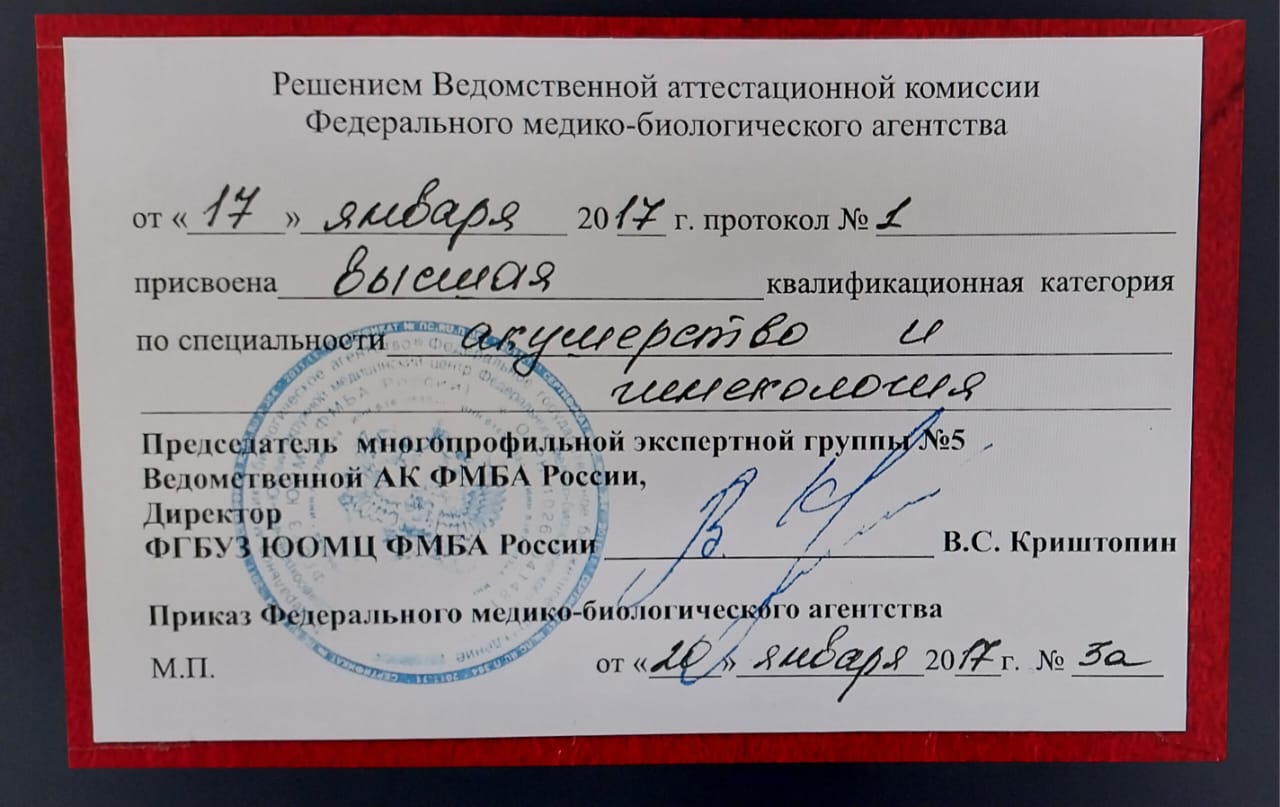 Решением Ведомственной аттестационной комиссии
Федерального медико-биологического агентства
от «17» января 2017 г. протокол № 1
присвоена высшая квалификационная категория
по специальности акушерство и
гинекология
Председатель многопрофильной экспертной группы №5
Ведомственной АК ФМБА России,
Директор
ФГБУЗ ЮОМЦ ФМБА России В.С. Криштопин
Приказ Федерального медико-биологического агентства
М.П. от «20» января 2017 г. № 3а